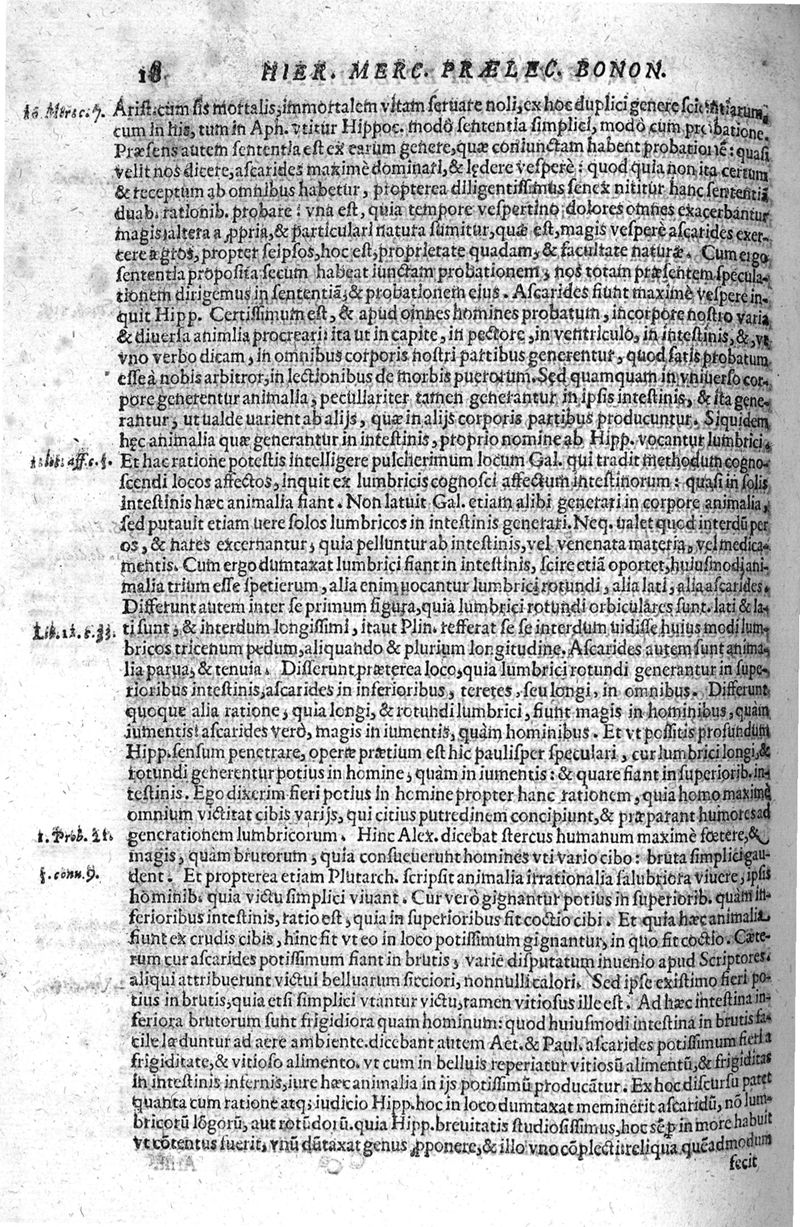 18 HIER. MERC. PRÆLEC. BONON.
Arist. cum sis mortalis, immortalem vitam seruare noli, ex hoc duplici genere scientiarum,
cum in his, tum in Aph. vtitur Hippoc. modò sententia simplici, modò cum probatione.
Præsens autem sententia est ex earum genere, quæ coniunctam habent probationē: quasi
velit nos dicere, ascarides maximè dominari, & lędere vesperè: quod quia non ita certum
& receptum ab omnibus habetur, propterea diligentissimus senex nititur hanc sententiā
duab. rationib. probare: vna est, quia tempore vespertino dolores omnes exacerbantur
magis, altera a ꝓpria, & particulari natura sumitur, quæ est, magis vesperè ascarides exer-
tere ægros, propter seipsos, hoc est, proprietate quadam, & facultate naturæ. Cum ergo
sententia proposita secum habeat iunctam probationem, nos totam præsentem specula-
tionem dirigemus in sententiā, & probationem ejus. Ascarides fiunt maximè vespere in-
quit Hipp. Certissimum est, & apud omnes homines probatum, in corpore nostro varia
& diuersa animlia procreari: ita ut in capite, in pectore, in ventriculo, in intestinis, &, vt
vno verbo dicam, in omnibus corporis nostri partibus generentur, quod satis probatum
esse à nobis arbitror, in lectionibus de morbis puerorum. Sed quamquam in vniuerso cor-
pore generentur animalia, peculiariter tamen generantur in ipsis intestinis, & ita gene-
rantur, ut ualde varient ab alijs, quæ in alijs corporis partibus producuntur. Siquidem
hęc animalia quæ generantur in intestinis, proprio nomine ab Hipp. vocantur lumbrici.
Et hac ratione potestis intelligere pulcherimum locum Gal. qui tradit methodum cogno-
scendi locos affectos, inquit ex lumbricis cognosci affectum intestinorum: quasi in solis
intestinis hæc animalia fiant. Non latuit Gal. etiam alibi generari in corpore animalia,
sed putauit etiam uere solos lumbricos in intestinis generari. Neq. ualet quod interdū per
os, & nares excernantur, quia pelluntur ab intestinis, vel venenata materia, vel medica-
mentis. Cum ergo dumtaxat lumbrici fiant in intestinis, scire etiā oportet, huiusmodi ani-
malia trium esse spetierum, alia enim uocantur lumbrici rotundi, alia lati, alia ascarides.
Differunt autem inter se primum figura, quia lumbrici rotundi orbiculares sunt. lati & la-
Lib. 11. c. 33. ti sunt, & interdum longissimi, itaut Plin. refferat se se interdum uidisse huius modi lum-
bricos tricenum pedum, aliquando & plurium longitudine. Ascarides autem sunt anima-
lia parua, & tenuia. Differunt præterea loco, quia lumbrici rotundi generantur in supe-
rioribus intestinis, ascarides in inferioribus, teretes, seu longi, in omnibus. Differunt
quoque alia ratione, quia longi, & rotundi lumbrici, fiunt magis in hominibus, quàm
iumentis: ascarides verò, magis in iumentis, quàm hominibus. Et vt possitis profundum
Hipp. sensum penetrare, operæ prætium est hic paulisper speculari, cur lumbrici longi, &
rotundi generentur potius in homine, quàm in iumentis: & quare fiant in superiorib. in-
testinis. Ego dixerim fieri potius in homine propter hanc rationem, quia homo maximè
omnium victitat cibis varijs, qui citius putredinem concipiunt, & præparant humores ad
1. Prob. 21. generationem lumbricorum. Hinc Alex. dicebat stercus humanum maximè fœtere, &
magis, quàm brutorum, quia consueuerunt homines vti vario cibo: bruta simplici gau-
dent. Et propterea etiam Plutarch. scripsit animalia irrationalia salubriora viuere, ipsis
hominib. quia victu simplici viuant. Cur verò gignantur potius in superiorib. quàm in-
ferioribus intestinis, ratio est, quia in superioribus fit coctio cibi. Et quia hæc animalia
fiunt ex crudis cibis, hinc fit vt eo in loco potissimum gignantur, in quo fit coctio. Cæte-
rum cur ascarides potissimum fiant in brutis, variè disputatum inuenio apud Scriptores.
aliqui attribuerunt victui belluarum sicciori, nonnulli calori. Sed ipse existimo fieri po-
tius in brutis, quia etsi simplici vtantur victu, tamen vitiosus ille est. Ad hæc intestina in-
feriora brutorum sunt frigidiora quam hominum: quod huiusmodi intestina in brutis fa-
cile læduntur ad aere ambiente. dicebant autem Aet. & Paul. ascarides potissimum fieri à
frigiditate, & vitioso alimento. vt cum in belluis reperiatur vitiosū alimentū, & frigiditas
in intestinis infernis, iure hæc animalia in ijs potissimū producātur. Ex hoc discursu patet
quanta cum ratione atq; iudicio Hipp. hoc in loco dumtaxat meminerit ascaridū, nō lum-
bricorū lōgorū, aut rotūdorū. quia Hipp. breuitatis studiosissimus, hoc sēꝑ in more habuit
vt cōtentus fuerit, vnū dūtaxat genus ꝓponere, & illo vno cōplecti reliqua quēadmodum
fecit